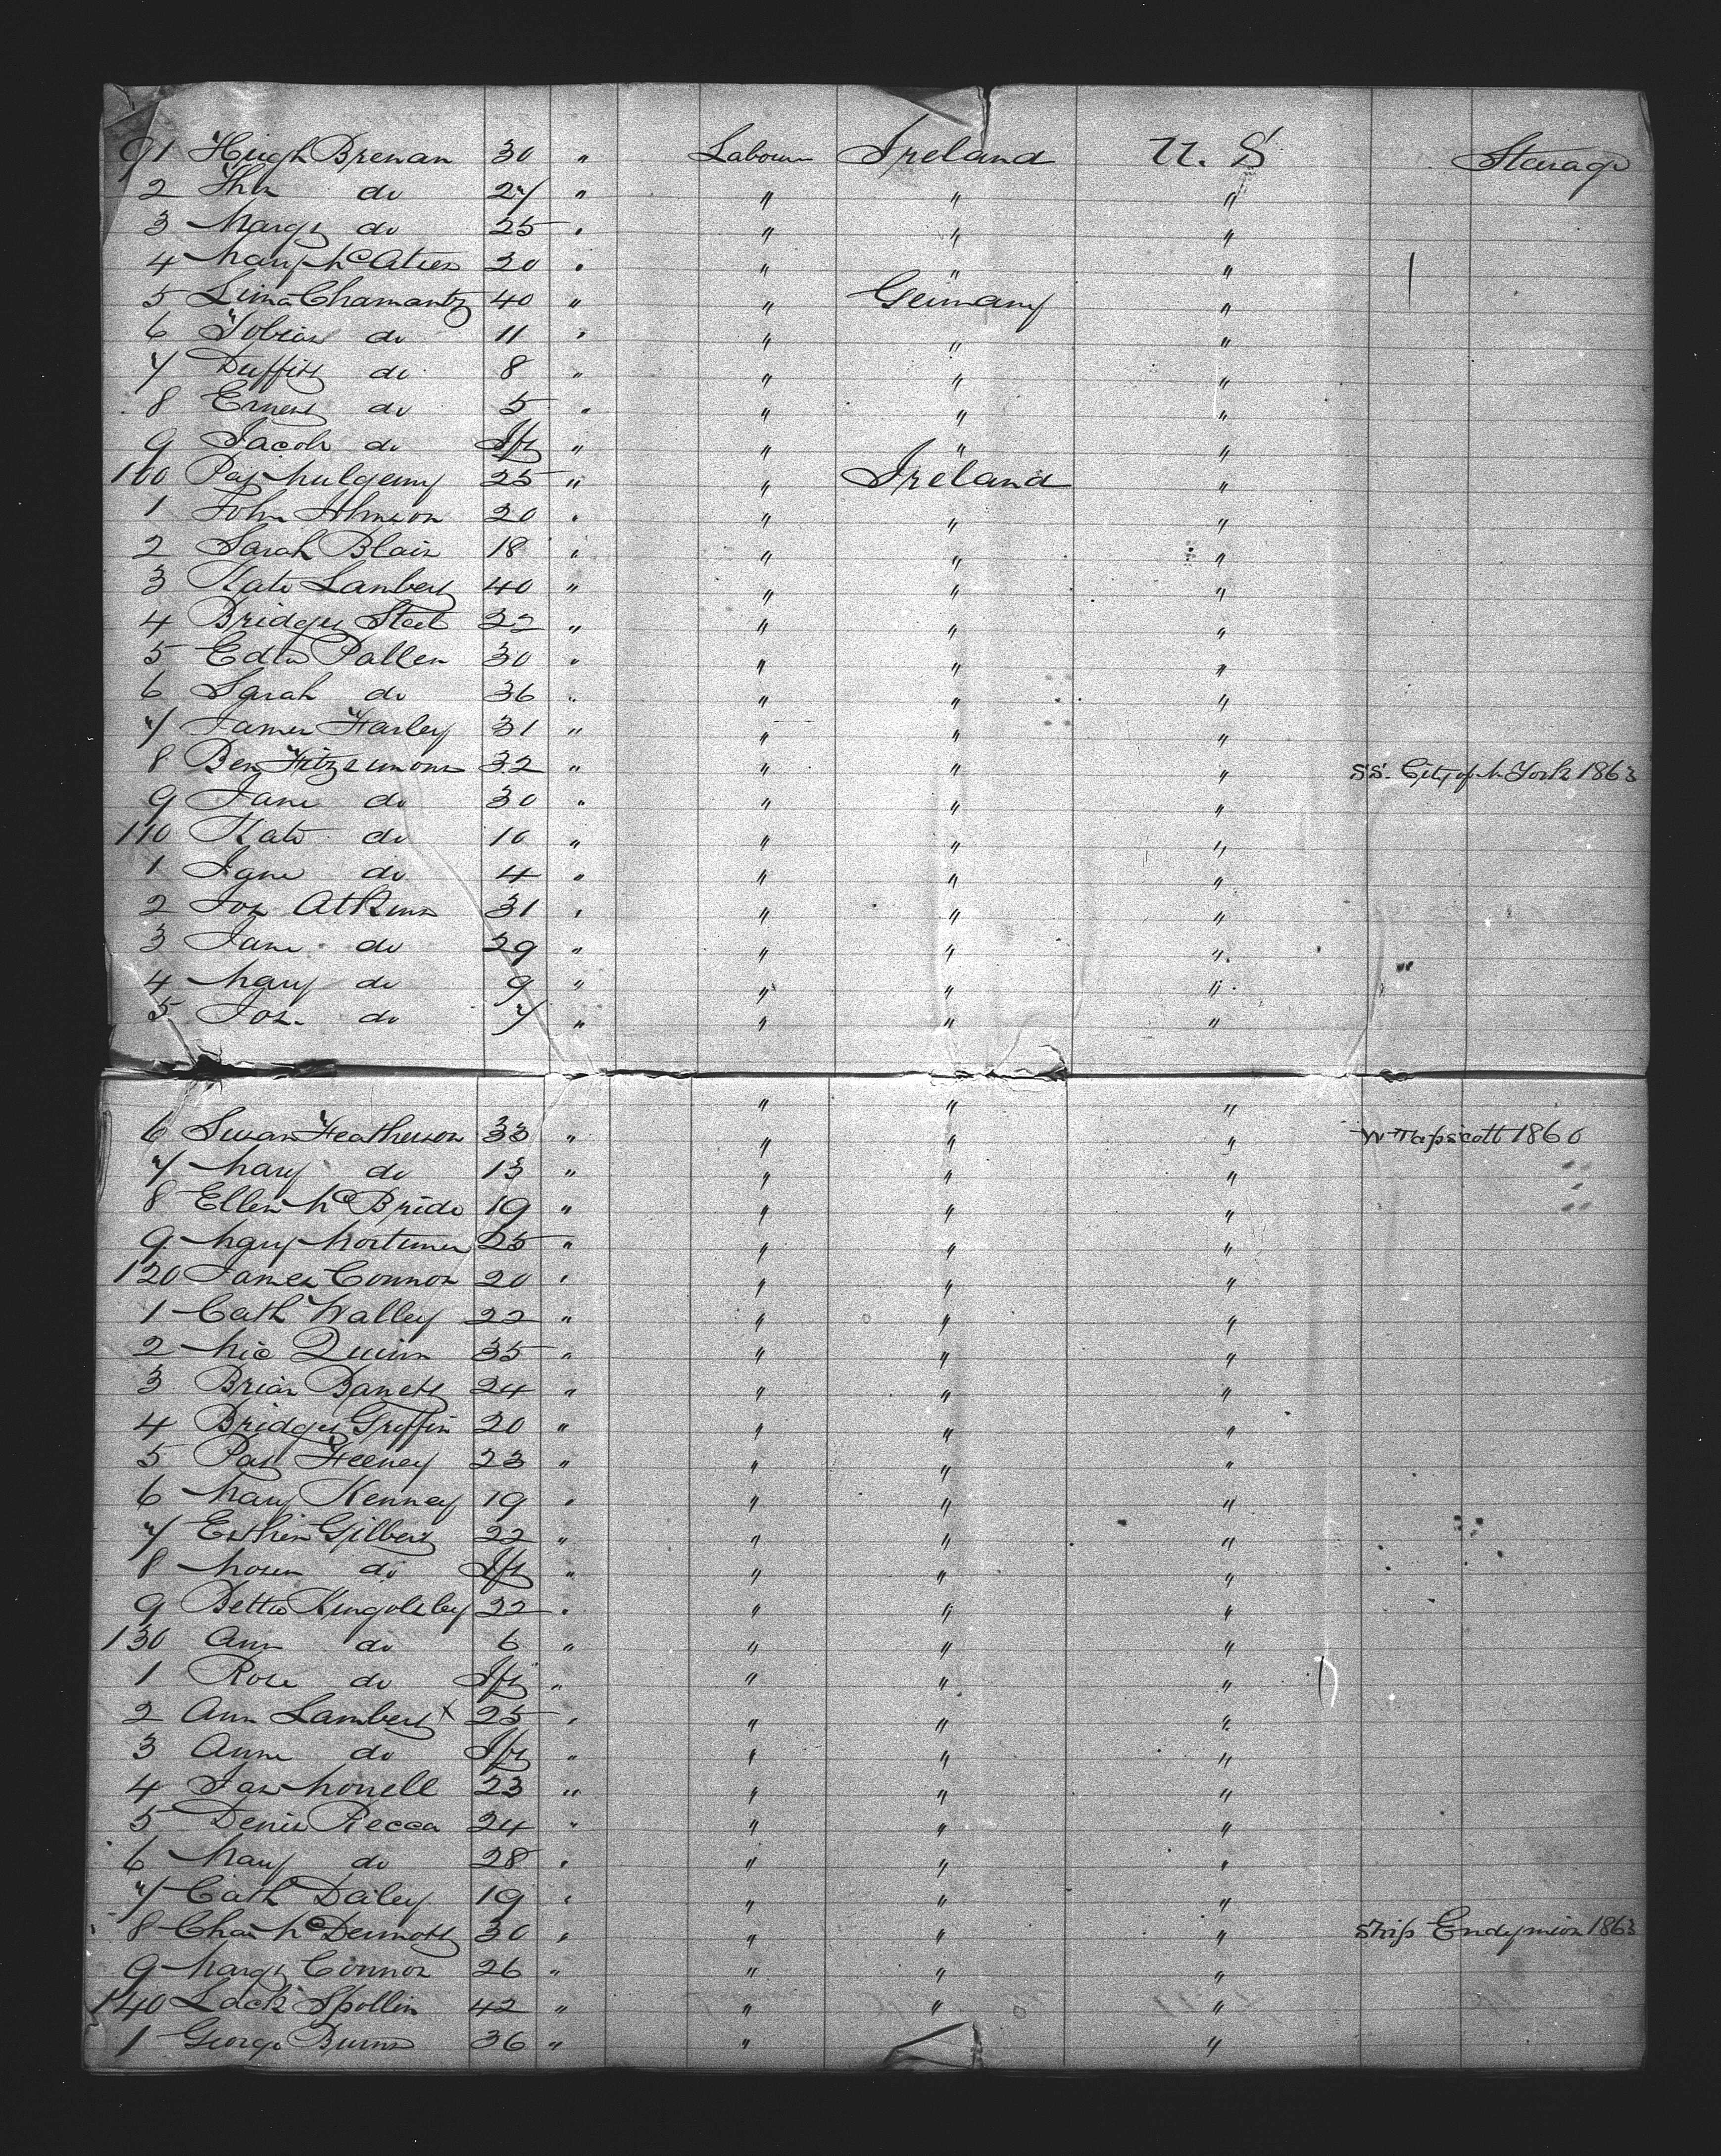 91 Hugh Brenan 30 " Labour Ireland U. S Stearage
2 do 27 " " " "
3 Margt do 25 " " " "
4 Mary 20 " " " "
5 Lina Chamantz 40 " " Germany "
6 Tobias do 11 " " " "
7 do 8 " " " "
8 Ernest do 5 " " " "
9 Jacob do Ift " " " "
100 Pat Mulgenny 25 " " Ireland "
1 John Johnson 20 " " " "
2 Sarah Blair 18 " " " "
3 Kate Lambert 40 " " " "
4 Bridget Steel 22 " " " "
5 Pallen 30 " " " "
6 Sarah do 36 " " " "
7 James Harley 31 " " " "
8 Ben Fitzsimons 32 " " " " SS. City of N York 1863
9 Jane do 30 " " " "
110 Kate do 10 " " " "
1 Jane do 4 " " " "
2 Jos Atkins 31 " " " "
3 Jane do 29 " " " "
4 Mary do 9 " " " " "
5 Jos. do 7 " " " "
" " "
6 Susan Heatherson 33 " " " " W Tapscott 1860
7 Mary do 13 " " " "
8 Ellen McBride 19 " " " "
9 Mary Mortimer 25 " " " "
120 James Connor 20 " " " "
1 Cath Walley 22 " " " "
2 Mic Quinn 35 " " " "
3 Brian Barrett 24 " " " "
4 Bridget Griffin 20 " " " "
5 Pat Feeney 23 " " " "
6 Mary Kenney 19 " " " "
7 Esther Gilbert 22 " " " "
8 do Ift " " " "
9 Kingolsley 22 " " " "
130 Ann do 6 " " " "
1 Rose do Ift " " " "
2 Ann Lambert x 25 " " " "
3 Anne do Ift " " " "
4 Jas Morrell 23 " " " "
5 Denis Recca 24 " " " "
6 Mary do 28 " " " "
7 Cath Dailey 19 " " " "
8 Chas McDermott 30 " " " " Ship Endymion 1863
9 Margt Connor 26 " " " "
140 Lack Spollin 42 " " " "
1 George Burns 36 " " "